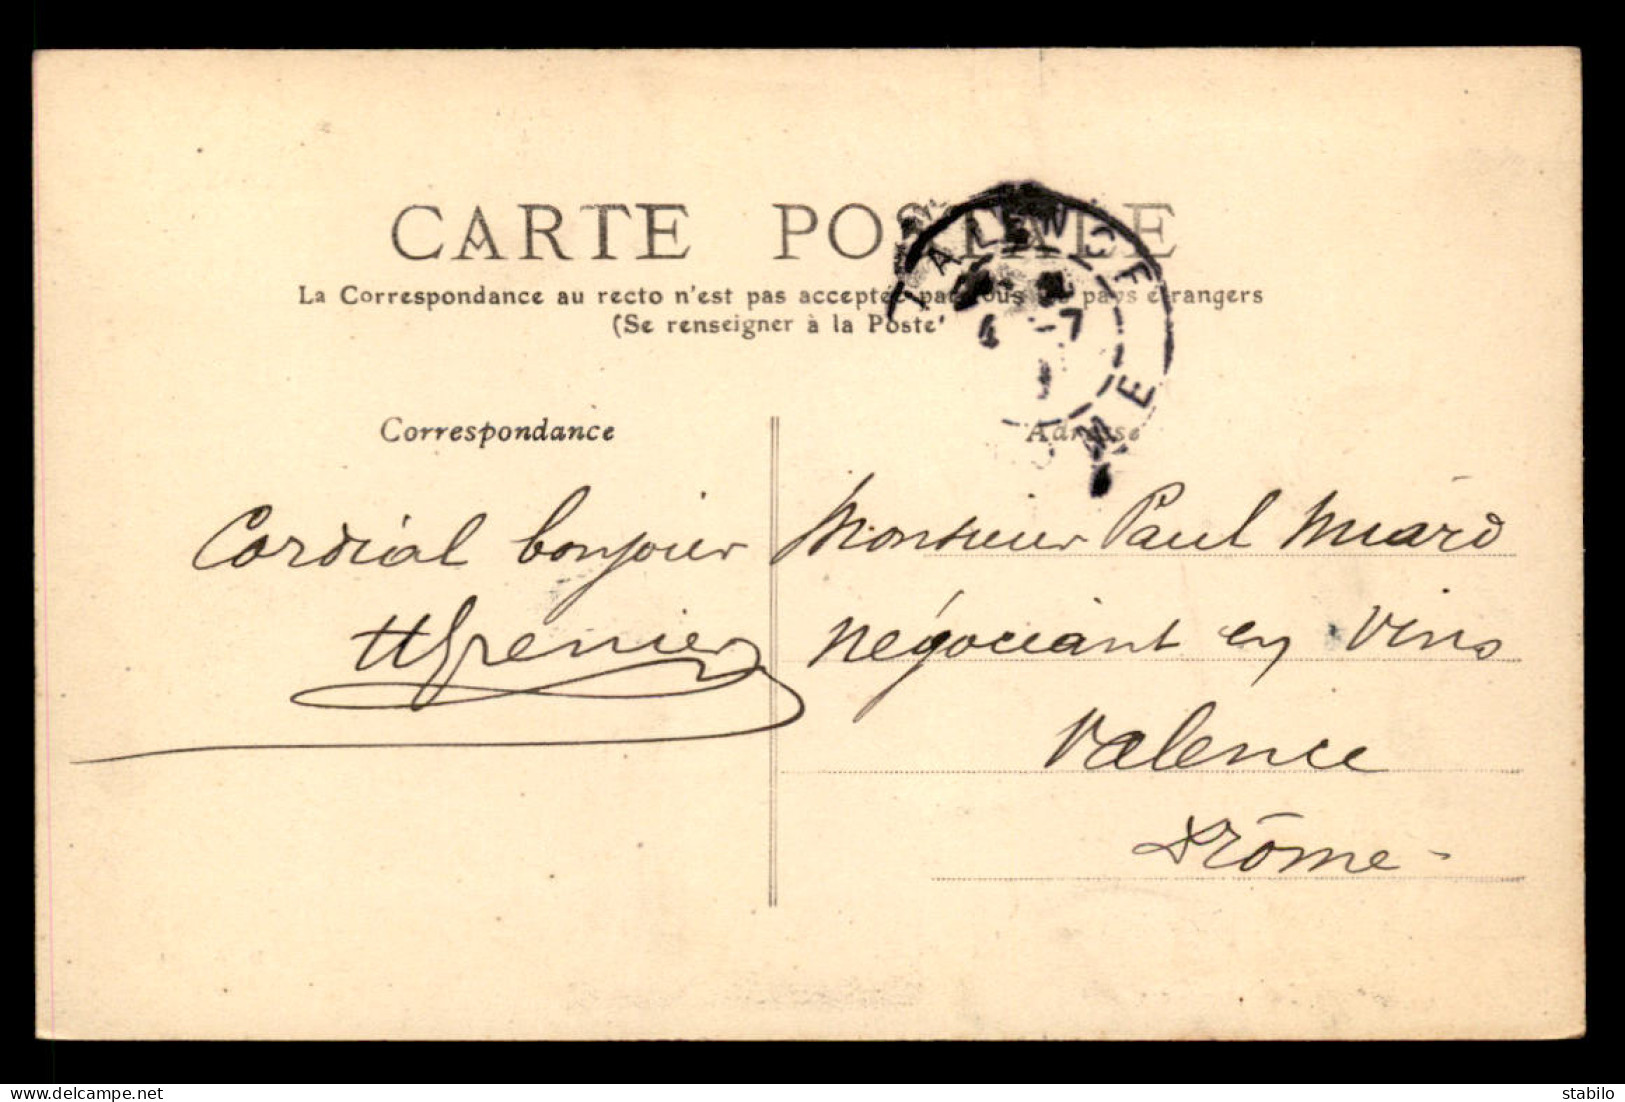 CARTE POSTALE
La Correspondance au recto n'est pas acceptée par tous les pays étrangers
(Se renseigner à la Poste)
VALENCE
4 -7
Correspondance
Adresse
Cordial bonjour
HGrenier
Monsieur Paul Miard
négociant en Vins
Valence
Drôme -
delcampe.net
stabilo